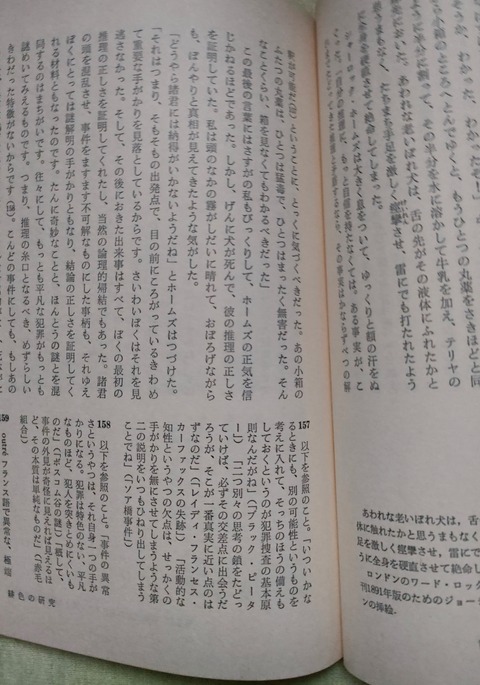 そうか、わかった、わかったぞ！」
に半分に割って、その半分を水に溶かして牛乳を加え、テリヤの
においた。あわれな老いぼれ犬は、舌の先がその液体にふれたかと
足を激しく痙攣させ、雷にでも打たれたよう
に全身を硬直させて絶命してしまった。
シャーロック・ホームズは大きく息をついて、ゆっくりと額の汗をぬ
ということに、とっくに気づくべきだった。あの小箱の
ふたつの丸薬は、ひとつは猛毒で、ひとつはまったく無害だった。そん
なことくらい、箱を見なくてもわかるべきだった」
この最後の言葉にはさすがの私もびっくりして、ホームズの正気を信
じかねるほどであった。しかし、げんに犬が死んで、彼の推理の正しさ
を証明していた。私は頭のなかの霧がしだいに晴れて、おぼろげながら
も、ぼんやりと真相が見えてきたような気がした。
「どうやら諸君には納得がいかないようだね」とホームズはつづけた。
「それはつまり、そもそもの出発点で、目の前にころがっているきわめ
て重要な手がかりを見落としているからです。さいわいぼくはそれを見
逃さなかった。そして、その後におきた出来事はすべて、ぼくの最初の
推理の正しさを証明してくれたし、当然の論理的帰結でもあった。諸君
の頭を混乱させ、事件をますます不可解なものとした事柄も、それゆえ
ぼくにとっては謎解明の手がかりともなり、結論の正しさを証明してく
れる材料ともなったのです。たんに奇妙なことと、ほんとうの謎とを混
同するのはまちがいです。往々にして、もっとも平凡な犯罪がもっとも
謎めいてみえるものです。つまり、推理の糸口となるべき、めずらしい
きわだった特徴がないからです(158)。こんどの事件にしても、もしあの
あわれな老いぼれ犬は、舌
体に触れたかと思うまもなく
足を激しく痙攣させ、雷にで
うに全身を硬直させて絶命し
ロンドンのワード・ロック
刊1891年版のためのジョー
ンの挿絵.
157 以下を参照のこと。「いついかな
るときにも、別の可能性というものを
考えに入れて、そっちのほうの備えも
しておくというのが犯罪捜査の基本原
則なんだがね」(「ブラック・ピータ
ー」)「二つ別々の思考の鎖をたどっ
ていけば、必ずその交差点に出会うだ
ろうが、そこが一番真実に近い点のは
ずなのだ」(「レイディ・フランセス・
カーファックスの失跡」)「活動的な
知性というやつの欠点は、せっかくの
手がかりを無にさせてしまうような第
二の説明をいつもひねり出してしまう
ことでね」(「ソア橋事件」)
158 以下を参照のこと。「事件の異常
さというやつは、それ自身一つの手が
かりになる。犯罪は特色のない、平凡
なものほど、犯人を突きとめにくいも
のだ」(「ボスコム谷の謎」)「概して、
事件の外見が奇怪に見えれば見えるほ
ど、その本質は単純なものだ」(「赤毛
組合」)
159 outré フランス語で異常な、極端
緋色の研究